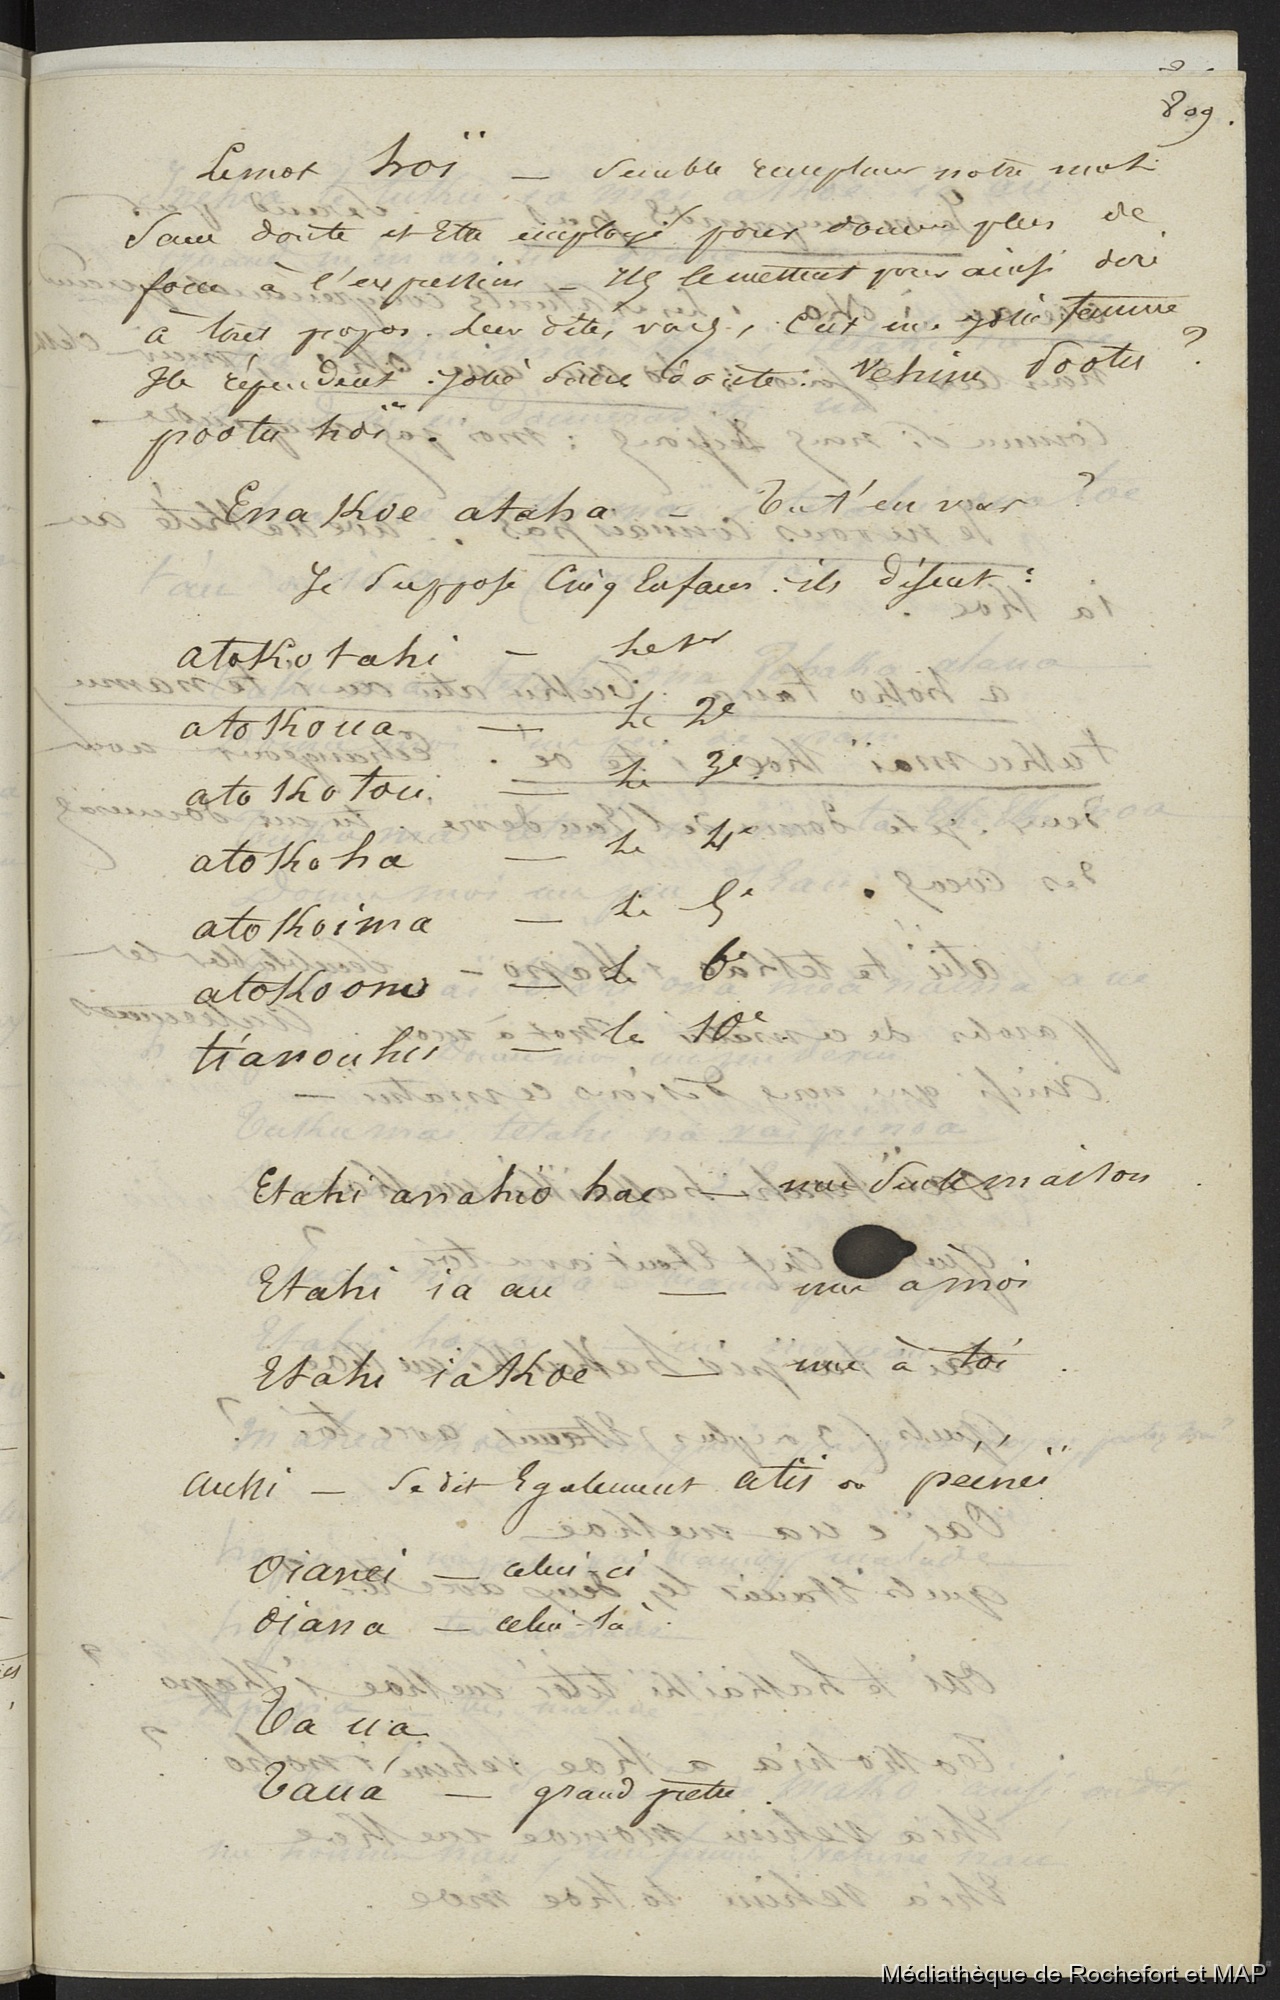 809.
Le mot hoï — semble remplacer notre mot
sans doute et Etre employé pour donner plus de
force à l'expression — Ils le mettent pour ainsi dire
à tout propos. Leur dites vous, C'est une jolie femme
Ils répondent. jolie sans doute. Vehine pootu ?
pootu hoï.
Ena Koe ataha — Tu t'en vas ?
Je Suppose Cinq Enfans. ils disent :
atoKotahi — Le 1er
atoKoua — Le 2e
atoKotou — Le 3e
atoKoha — Le 4e
atoKoima — Le 5e
atoKoono — Le 6e
tianouhu — Le 10e.
Etahi anahiö hae — une Seule maison
Etahi ia au — une à moi
Etahi ia Koe — une à toi
aussi — Se dit Egalement atii ou peineï
Oianei — celui-ci
Oiana — celui-là
Ta ua
Taua — grand prêtre.
Médiathèque de Rochefort et MAP